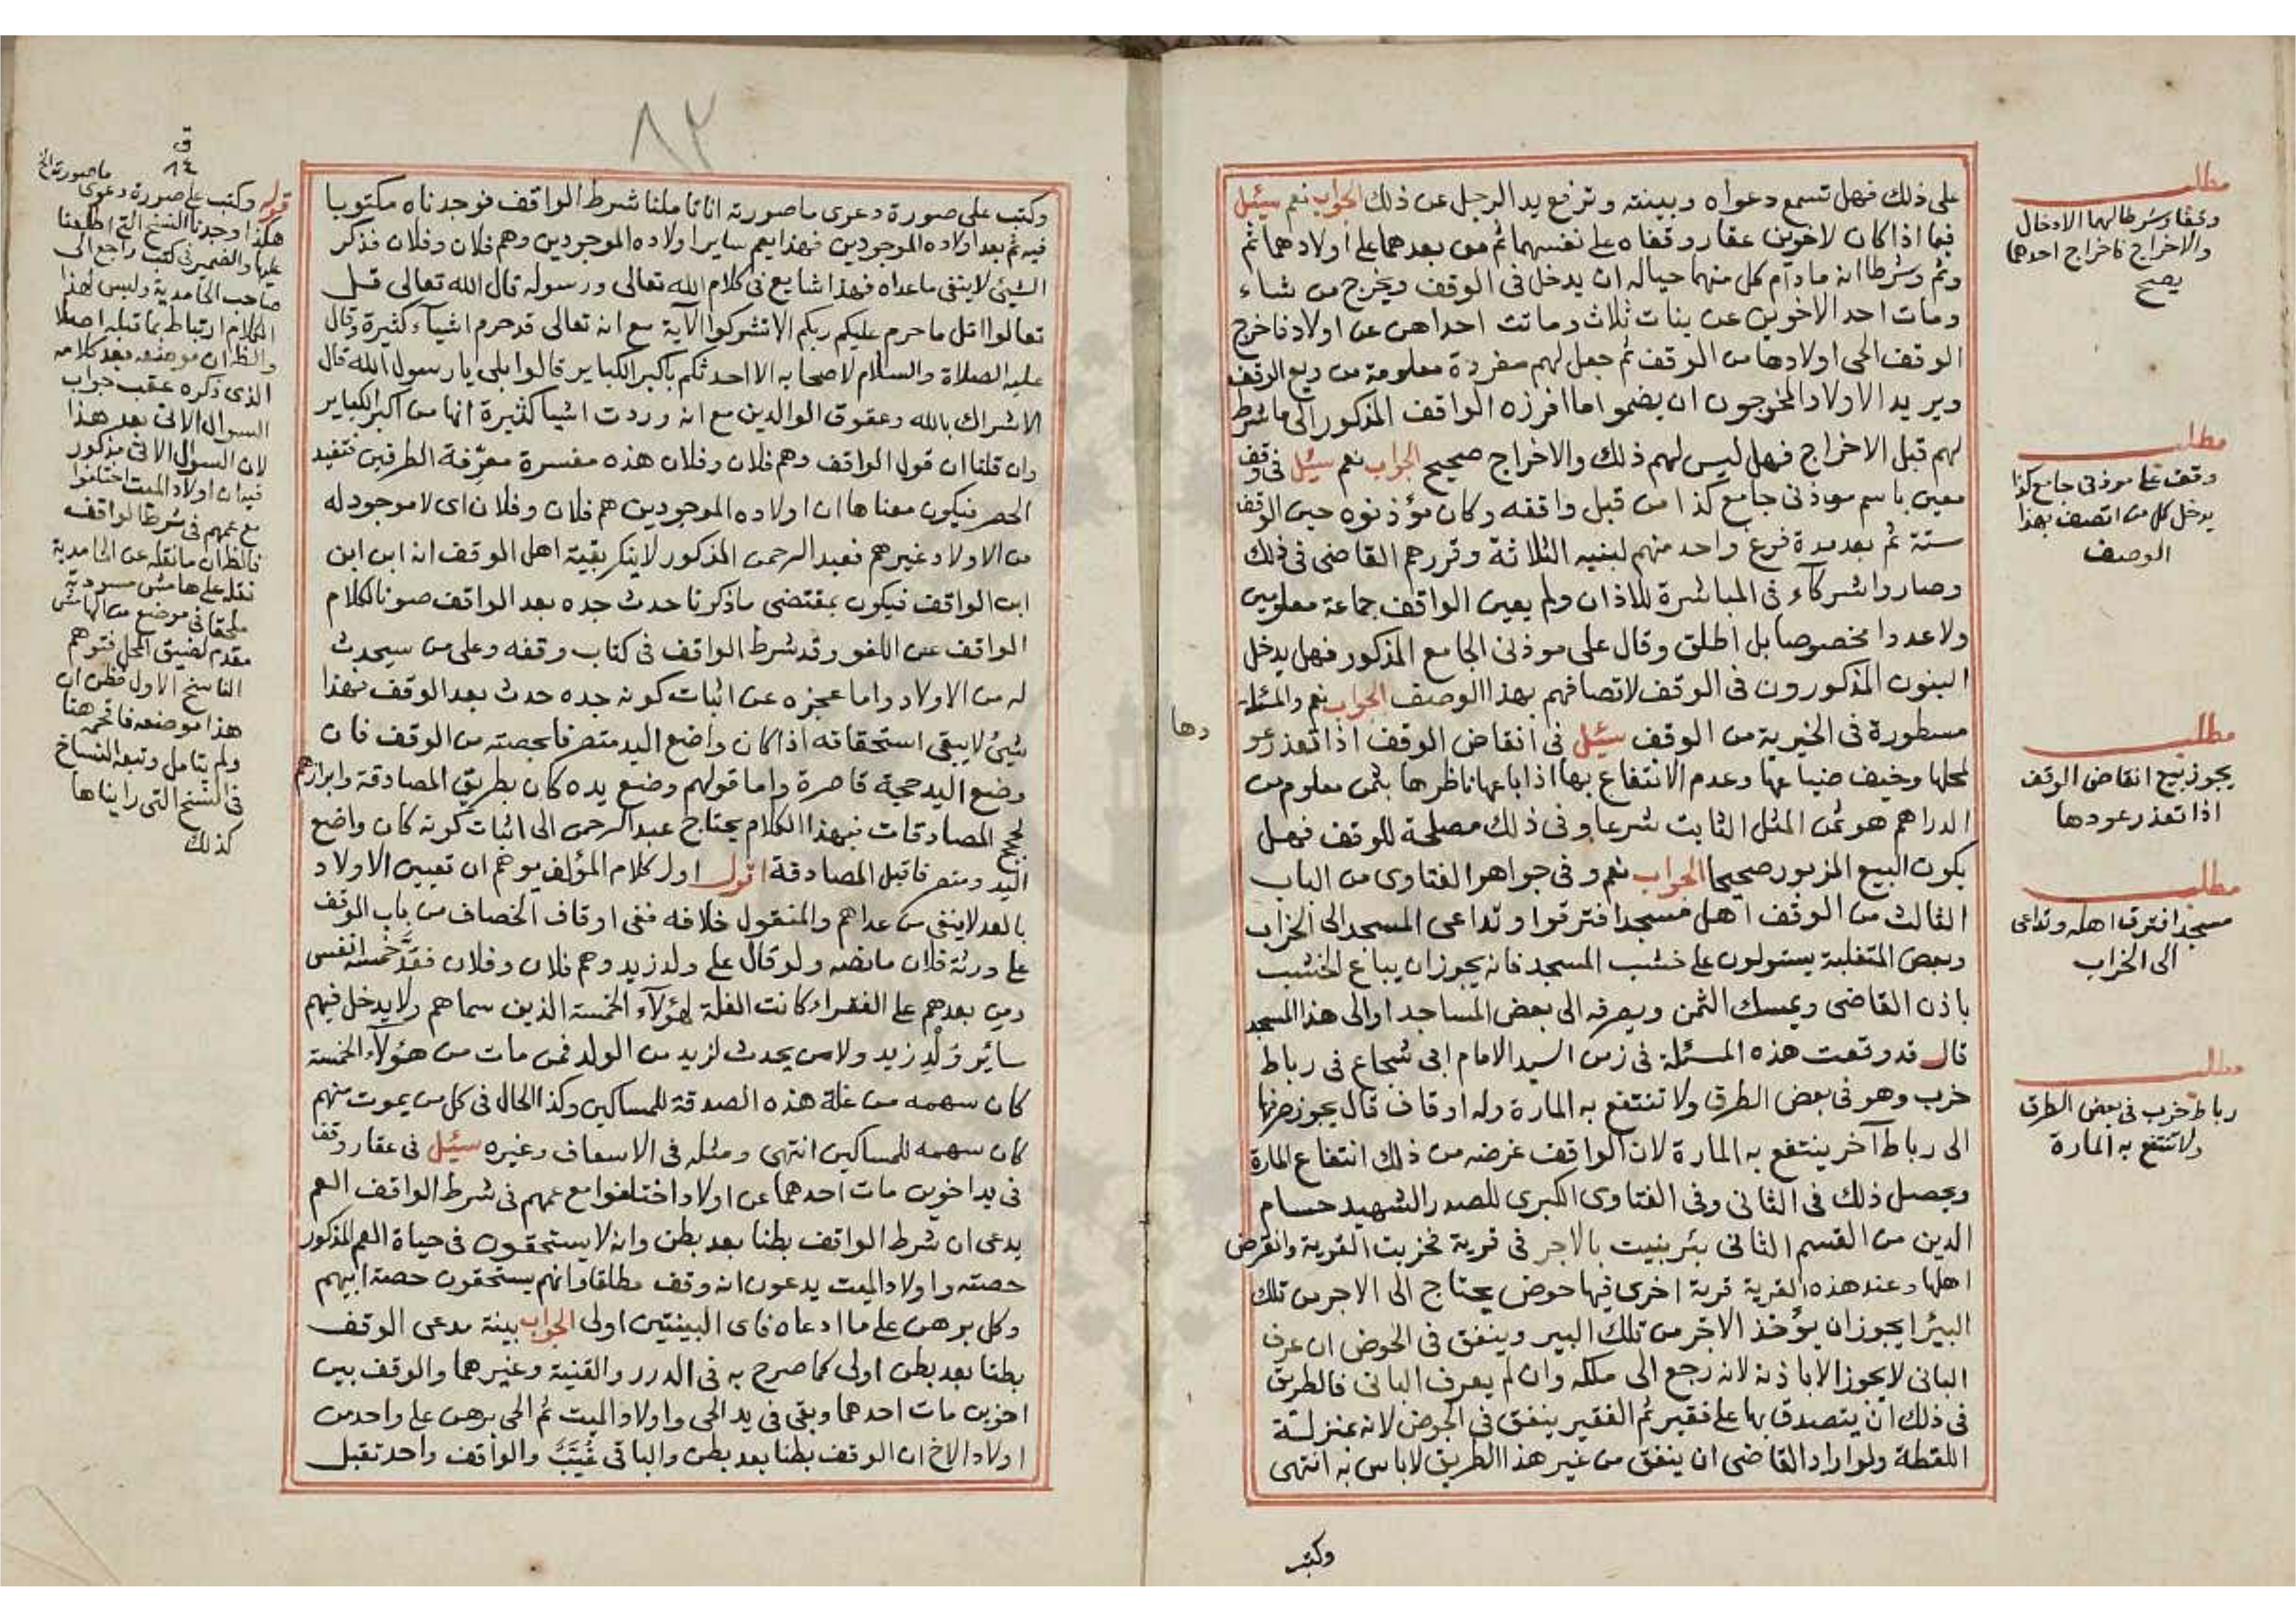 على ذلك فهل تسمع دعواه وبينته وترفع يد الرجل عن ذلك الجواب نعم سئل
فيما اذا كان لاخوين عقار وقفاه على نفسهما ثم من بعدهما على أولادهما ثم
وثم وشرطا انه مادام كل منهما حياله ان يدخل في الوقف ويخرج من شاء
ومات احد الاخوين عن بنات ثلاث وماتت احداهن عن اولاد فاخرج
الوقف الحي اولادها من الوقف ثم جعل لهم مفردة معلومة من ريع الوقف
ويريد الاولاد المخرجون ان يضموا ما افرزه الواقف المذكور الى ما شرط
لهم قبل الاخراج فهل ليس لهم ذلك والاخراج صحيح الجواب نعم سئل في وقف
معين باسم موذني جامع كذا من قبل واقفه وكان مؤذنوه حين الوقف
ستة ثم بعد مدة فرغ واحد منهم لبنيه الثلاثة وقررهم القاضي في ذلك
وصاروا شركآء في المباشرة للاذان ولم يعين الواقف جماعة معلومين
ولا عددا مخصوصا بل اطلق وقال على موذني الجامع المذكور فهل يدخل
البنون المذكورون في الوقف لاتصافهم بهذا الوصف الجواب نعم والمسئلة
مسطورة في الخيرية من الوقف سئل في انقاض الوقف اذا تعذر عو
دها
لمحلها وخيف ضياعها وعدم الانتفاع بها اذا باعها ناظرها بثمن معلوم من
الدراهم هو ثمن المثل الثابت شرعا وفي ذلك مصلحة للوقف فهل
يكون البيع المزبور صحيحا الجواب نعم وفي جواهر الفتاوى من الباب
الثالث من الوقف اهل مسجد افترقوا وتداعى المسجد الى الخراب
وبعض المتغلبة يستولون على خشب المسجد فانه يجوز ان يباع الخشب
باذن القاضي ويمسك الثمن ويصرفه الى بعض المساجد او الى هذا المسجد
قال قد وقعت هذه المسئلة في زمن السيد الامام ابي شجاع في رباط
خرب وهو في بعض الطرق ولا تنتفع به المارة وله اوقاف قال يجوز صرفها
الى رباط آخر ينتفع به المارة لان الواقف غرضه من ذلك انتفاع المارة
ويحصل ذلك في الثاني وفي الفتاوى الكبرى للصدر الشهيد حسام
الدين من القسم الثاني بئر بنيت بالاجر في قرية فخربت القرية وانقرض
اهلها وعند هذه القرية قرية اخرى فيها حوض يحتاج الى الاجر من تلك
البئر ايجوز ان يؤخذ الاجر من تلك البير وينفق في الحوض ان عرف
الباني لا يجوز الا باذنه لانه رجع الى ملكه وان لم يعرف الباني فالطريق
في ذلك ان يتصدق بها على فقير ثم الفقير ينفق في الحوض لانه بمنزلة
اللقطة ولو اراد القاضي ان ينفق من غير هذا الطريق لاباس به انتهى
وكتب
مطلب
وقفا وشرطا لهما الادخال
والاخراج فاخراج احدهما
يصح
مطلب
وقف على موذني جامع كذا
يدخل كل من اتصف بهذا
الوصف
مطلب
يجوز بيع انقاض الوقف
اذا تعذر عودها
مطلب
مسجد افترق اهله وتداعى
الى الخراب
مطلب
رباط خرب في بعض الطرق
ولا تنتفع به المارة
٨٢
وكتب على صورة دعوى ما صورته اناتاملنا شرط الواقف فوجدناه مكتوبا
فيه ثم بعد اولاده الموجودين فهذا يعم ساير اولاده الموجودين وهم فلان وفلان فذكر
الشيئ لا ينفي ماعداه فهذا شايع في كلام الله تعالى ورسوله قال الله تعالى قل
تعالوا اتل ما حرم عليكم ربكم الا تشركوا الآية مع انه تعالى قد حرم اشيآء كثيرة وقال
عليه الصلاة والسلام لاصحابه الا احدثكم باكبر الكباير قالوا بلى يا رسول الله قال
الاشراك بالله وعقوق الوالدين مع انه وردت اشيا كثيرة انها من اكبر الكباير
وان قلنا ان قول الواقف وهم فلان وفلان هذه مفسرة معرّفة الطرفين فتفيد
الحصر فيكون معناها ان اولاده الموجودين هم فلان وفلان اى لا موجود له
من الاولاد غيرهم فعبد الرحمن المذكور لا ينكر بقية اهل الوقف انه ابن ابن
ابن الواقف فيكون بمقتضى ماذكرنا حدث جده بعد الواقف صونا لكلام
الواقف عن اللغو وقد شرط الواقف في كتاب وقفه وعلى من سيحدث
له من الاولاد واما عجزه عن اثبات كونه جده حدث بعد الوقف فبهذا
شيئ لا يبقى استحقاقه اذا كان واضع اليد متصرفا بحصته من الوقف فان
وضع اليد حجة قاصرة واما قولهم وضع يده كان بطريق المصادقة وابرازهم
لحجج المصادقات فبهذا الكلام يحتاج عبد الرحمن الى اثبات كونه كان واضع
اليد ومتصرفا قبل المصادقة اقول اول كلام المؤلف يوهم ان تعيين الاولاد
بالعد لا ينفي من عداهم والمنقول خلافه ففي اوقاف الخصاف من باب الوقف
على ورثة فلان ما نصه ولو قال على ولد زيد وهم فلان وفلان فعَدَّ خمسة انفس
ومن بعدهم على الفقراء كانت الغلة لهؤلآء الخمسة الذين سماهم ولا يدخل فيهم
سائر وُلْدِ زيد ولا من يحدث لزيد من الولد فمن مات من هؤلآء الخمسة
كان سهمه من غلة هذه الصدقة للمساكين وكذا الحال في كل من يموت منهم
كان سهمه للمساكين انتهى ومثله في الاسعاف وغيره سئل في عقار وقف
في يد اخوين مات احدهما عن اولاد اختلفوا مع عمهم في شرط الواقف العم
يدعى ان شرط الواقف بطنا بعد بطن وانه لا يستحقون في حياة العم المذكور
حصته واولاد الميت يدعون انه وقف مطلقا وانهم يستحقون حصة ابيهم
وكل برهن على ما ادعاه فاى البينتين اولى الجواب بينة مدعى الوقف
بطنا بعد بطن اولى كما صرح به في الدرر والقنية وغيرهما والوقف بين
اخوين مات احدهما وبقى في يد الحى واولاد الميت ثم الحى برهن على واحد من
اولاد الاخ ان الوقف بطنا بعد بطن والباقي غُيَّبٌ والواقف واحد تقبل
ق
١٤
قوله وكتب على صورة دعوى
ما صورته الخ
هكذا وجدنا النسخ التي اطلعنا
عليها والضمير في كتب راجع الى
صاحب الحامدية وليس لهذا
الكلام ارتباط بما قبله اصلا
والظ ان موضعه بعد كلامه
الذي ذكره عقب جواب
السوال الاتي بعد هذا
لان السؤال الاتي مذكور
فيه ان اولاد الميت اختلفوا
مع عمهم في شرط الواقف
فالظ ان ما نقله عن الحامدية
نقله على هامش مسودته
ملحقا في موضع من الهامش
مقدم لضيق المحل فتوهم
الناسخ الاول فظن ان
هذا موضعه فاقحمه هنا
ولم يتامل وتبعه النساخ
في النسخ التي رايناها
كذلك